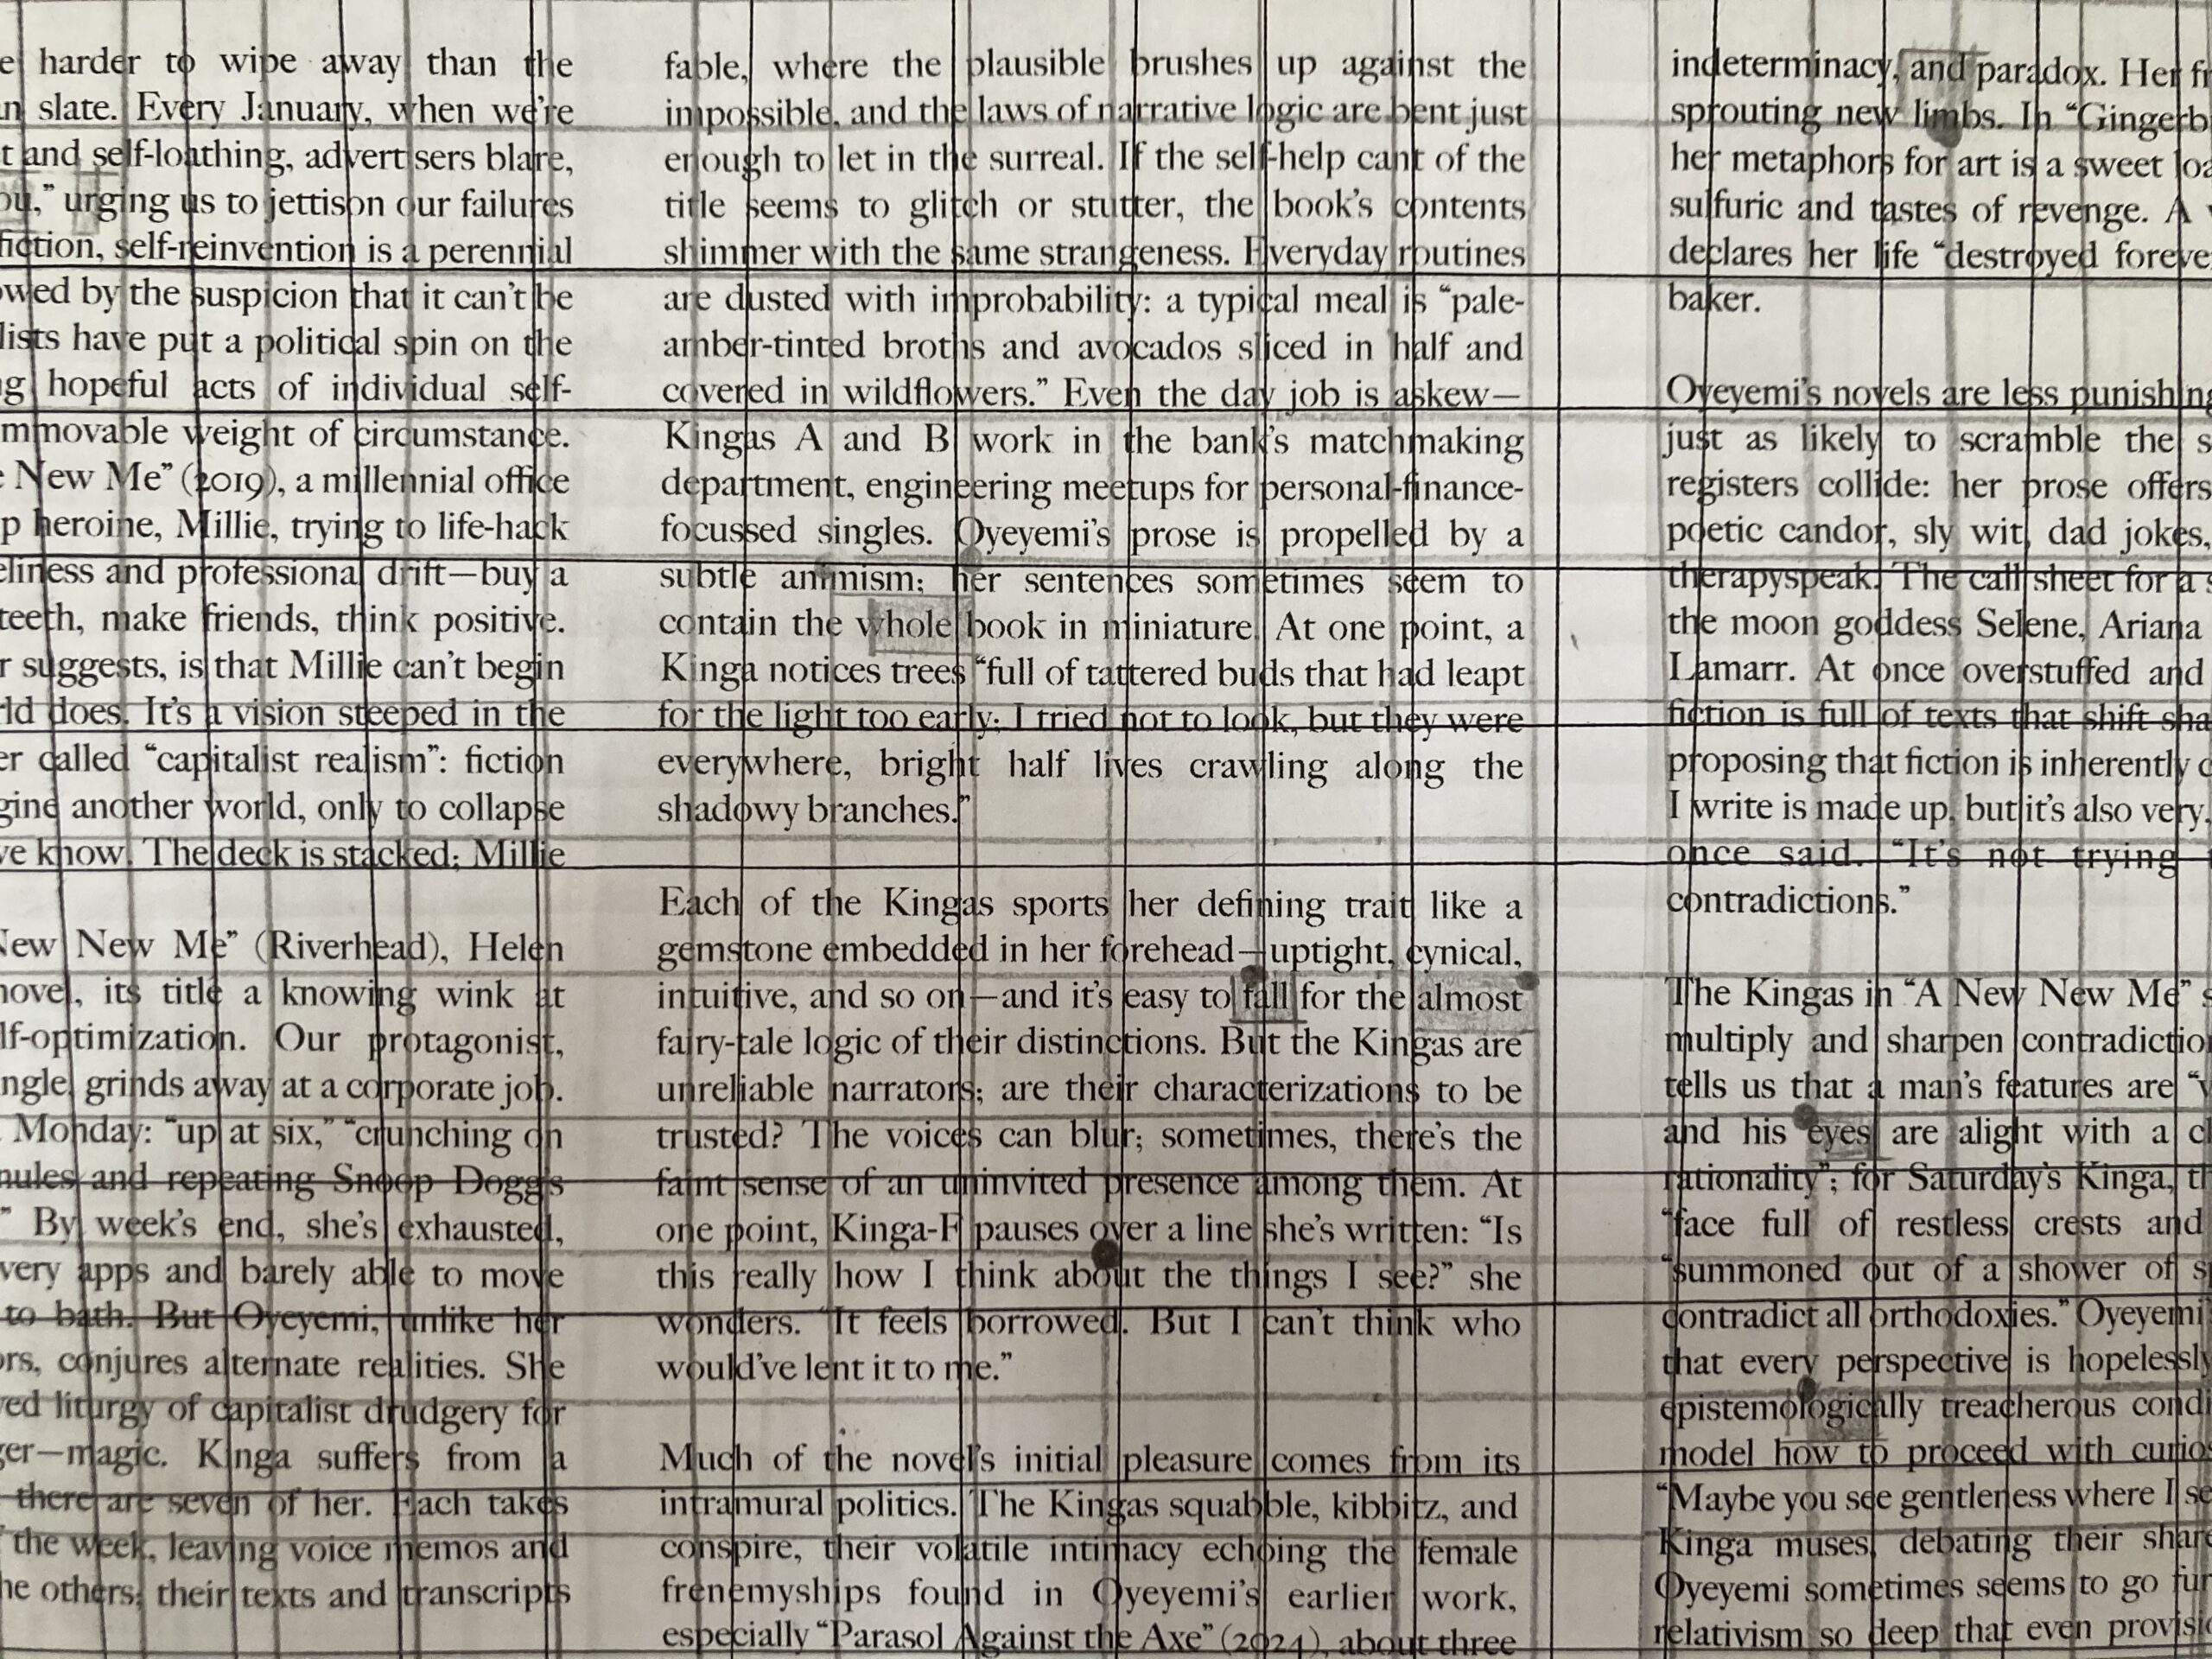 harder to wipe away than the
slate. Every January, when we're
and self-loathing, advertisers blare,
urging us to jettison our failures
fiction, self-reinvention is a perennial
by the suspicion that it can't be
have put a political spin on the
hopeful acts of individual self-
weight of circumstance.
New Me” (2019), a millennial office
heroine, Millie, trying to life-hack
and professional drift—buy a
teeth, make friends, think positive.
suggests, is that Millie can't begin
does. It's a vision steeped in the
called “capitalist realism”: fiction
another world, only to collapse
know. The deck is stacked; Millie
New Me” (Riverhead), Helen
its title a knowing wink at
Our protagonist,
grinds away at a corporate job.
Monday: “up at six,” “crunching on
and repeating Snoop Dogg's
” By week's end, she's exhausted,
apps and barely able to move
to bath. But Oyeyemi, unlike her
conjures alternate realities. She
liturgy of capitalist drudgery for
magic. Kinga suffers from a
there are seven of her. Each takes
the week, leaving voice memos and
others; their texts and transcripts
fable, where the plausible brushes up against the
impossible, and the laws of narrative logic are bent just
enough to let in the surreal. If the self-help cant of the
title seems to glitch or stutter, the book's contents
shimmer with the same strangeness. Everyday routines
are dusted with improbability: a typical meal is “pale-
amber-tinted broths and avocados sliced in half and
covered in wildflowers.” Even the day job is askew—
Kingas A and B work in the bank's matchmaking
department, engineering meetups for personal-finance-
focussed singles. Oyeyemi's prose is propelled by a
subtle animism; her sentences sometimes seem to
contain the whole book in miniature. At one point, a
Kinga notices trees “full of tattered buds that had leapt
for the light too early; I tried not to look, but they were
everywhere, bright half lives crawling along the
shadowy branches.”
Each of the Kingas sports her defining trait like a
gemstone embedded in her forehead—uptight, cynical,
intuitive, and so on—and it's easy to fall for the almost
fairy-tale logic of their distinctions. But the Kingas are
unreliable narrators; are their characterizations to be
trusted? The voices can blur; sometimes, there's the
faint sense of an uninvited presence among them. At
one point, Kinga-F pauses over a line she's written: “Is
this really how I think about the things I see?” she
wonders. “It feels borrowed. But I can't think who
would've lent it to me.”
Much of the novel's initial pleasure comes from its
intramural politics. The Kingas squabble, kibbitz, and
conspire, their volatile intimacy echoing the female
frenemyships found in Oyeyemi's earlier work,
especially “Parasol Against the Axe” (2024), about three
indeterminacy, and paradox. Her
sprouting new limbs. In
her metaphors for art is a sweet
sulfuric and tastes of revenge. A
declares her life “destroyed
baker.
Oyeyemi's novels are less
just as likely to scramble the
registers collide: her prose offers
poetic candor, sly wit, dad jokes,
therapyspeak. The call sheet for a
the moon goddess Selene, Ariana
Lamarr. At once overstuffed and
fiction is full of texts that shift
proposing that fiction is inherently
I write is made up, but it's also very,
once said. “It's not trying
contradictions.”
The Kingas in “A New New Me”
multiply and sharpen
tells us that a man's features are
and his eyes are alight with a
rationality”; for Saturday's Kinga,
“face full of restless crests and
“summoned out of a shower of
contradict all orthodoxies.” Oyeyemi
that every perspective is hopelessly
epistemologically treacherous
model how to proceed with
“Maybe you see gentleness where I
Kinga muses, debating their
Oyeyemi sometimes seems to go
relativism so deep that even